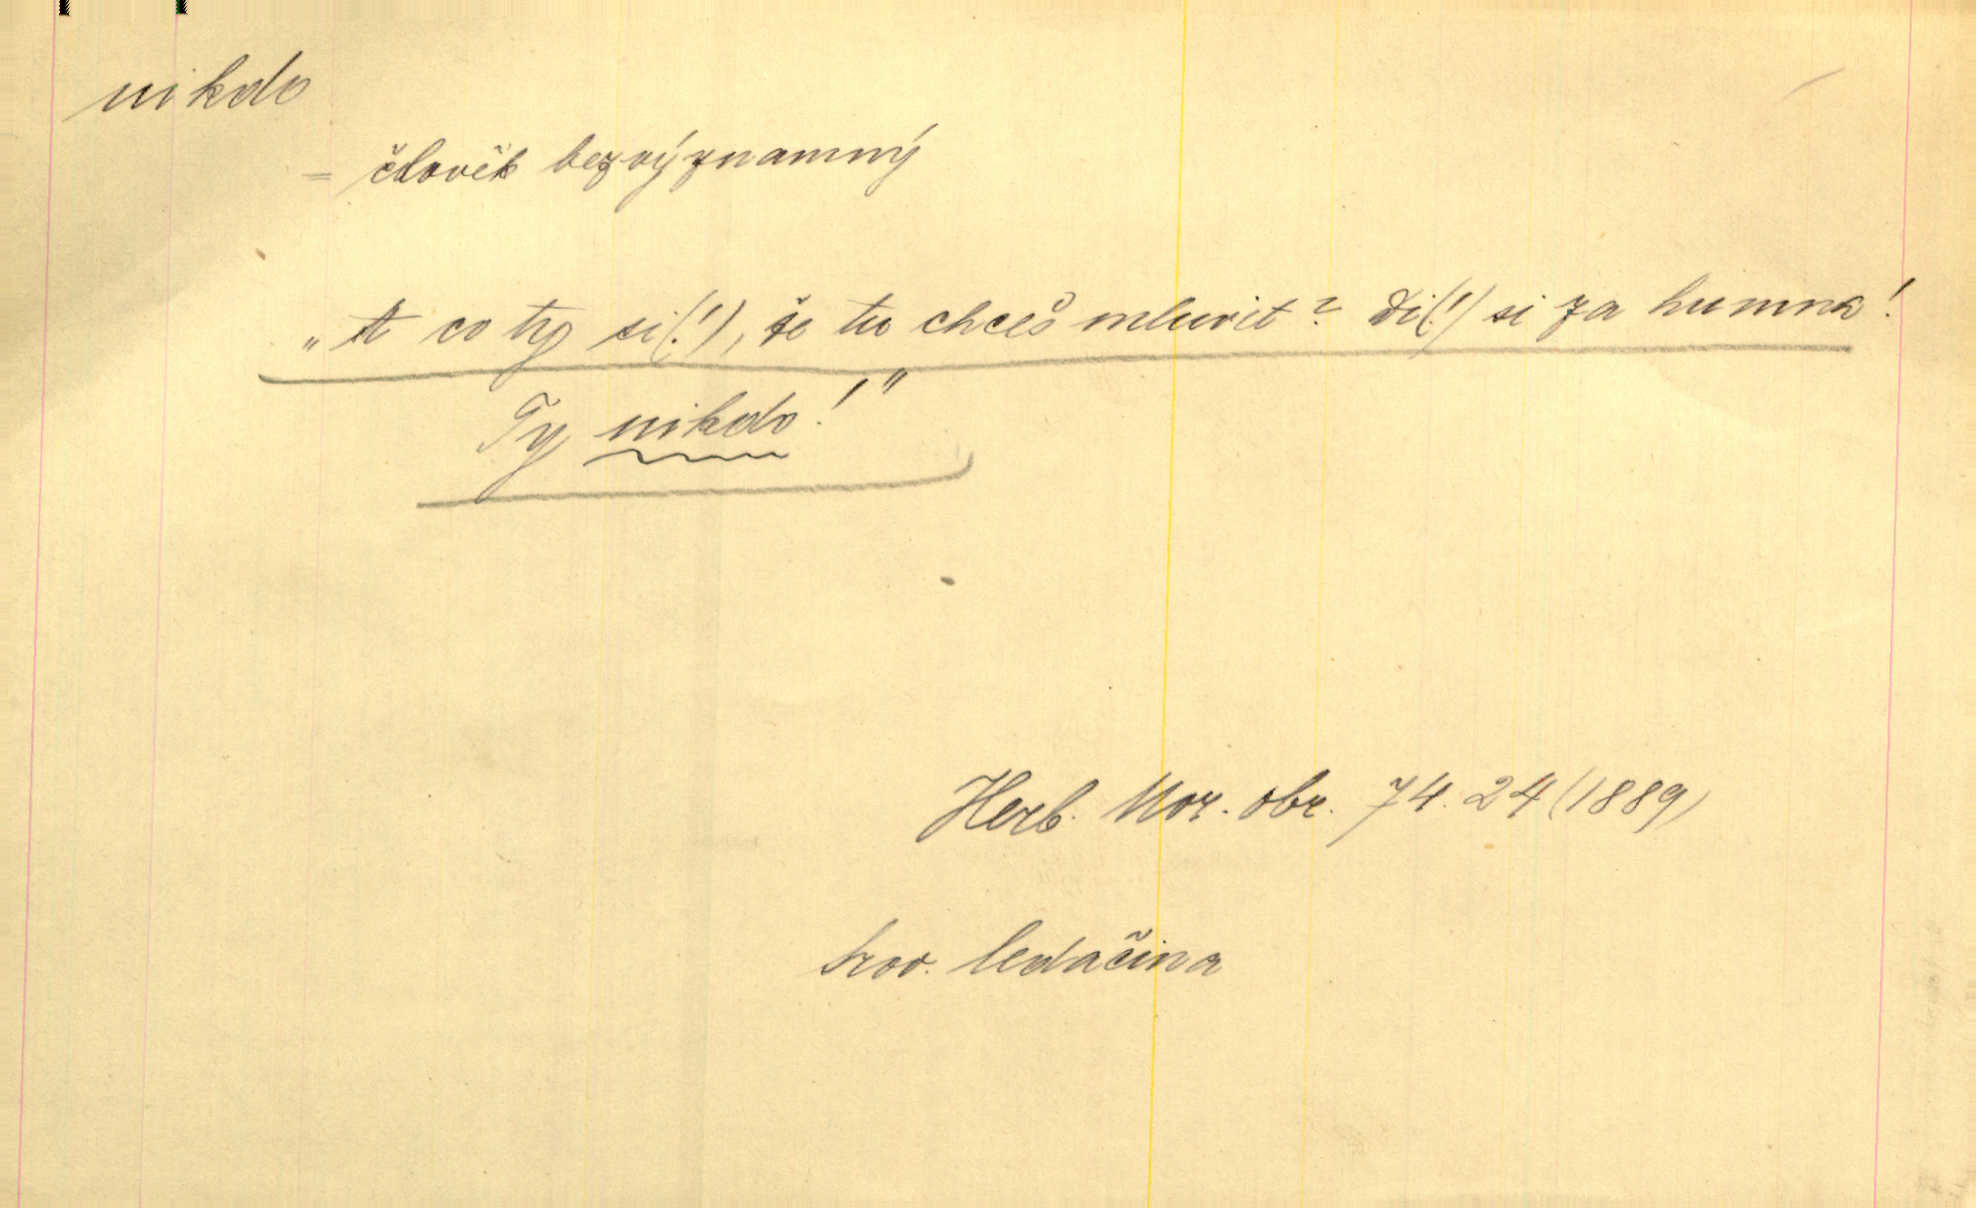 nikdo
= člověk bezvýznamný
„A co ty si(!), že tu chceš mluvit? Di(!) si za humna!
Ty nikdo!"
Herb. Mor. obr. 74. 24 (1889)
srov. ledačina